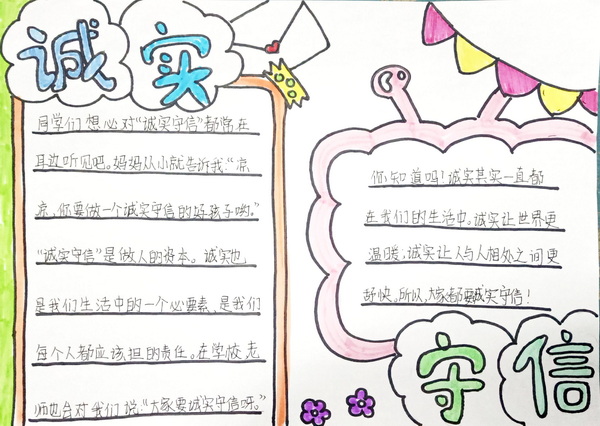 诚实
同学们想必对“诚实守信”都常在
耳边听见吧。妈妈从小就告诉我:“凉
凉,你要做一个诚实守信的好孩子哟。”
“诚实守信”是做人的资本。诚实也
是我们生活中的一个必要素,是我们
每个人都应该担的责任。在学校老
师也会对我们说:“大家要诚实守信呀。”
你知道吗!诚实其实一直都
在我们的生活中。诚实让世界更
温暖;诚实让人与人相处之间更
舒快。所以,大家都要诚实守信!
守信